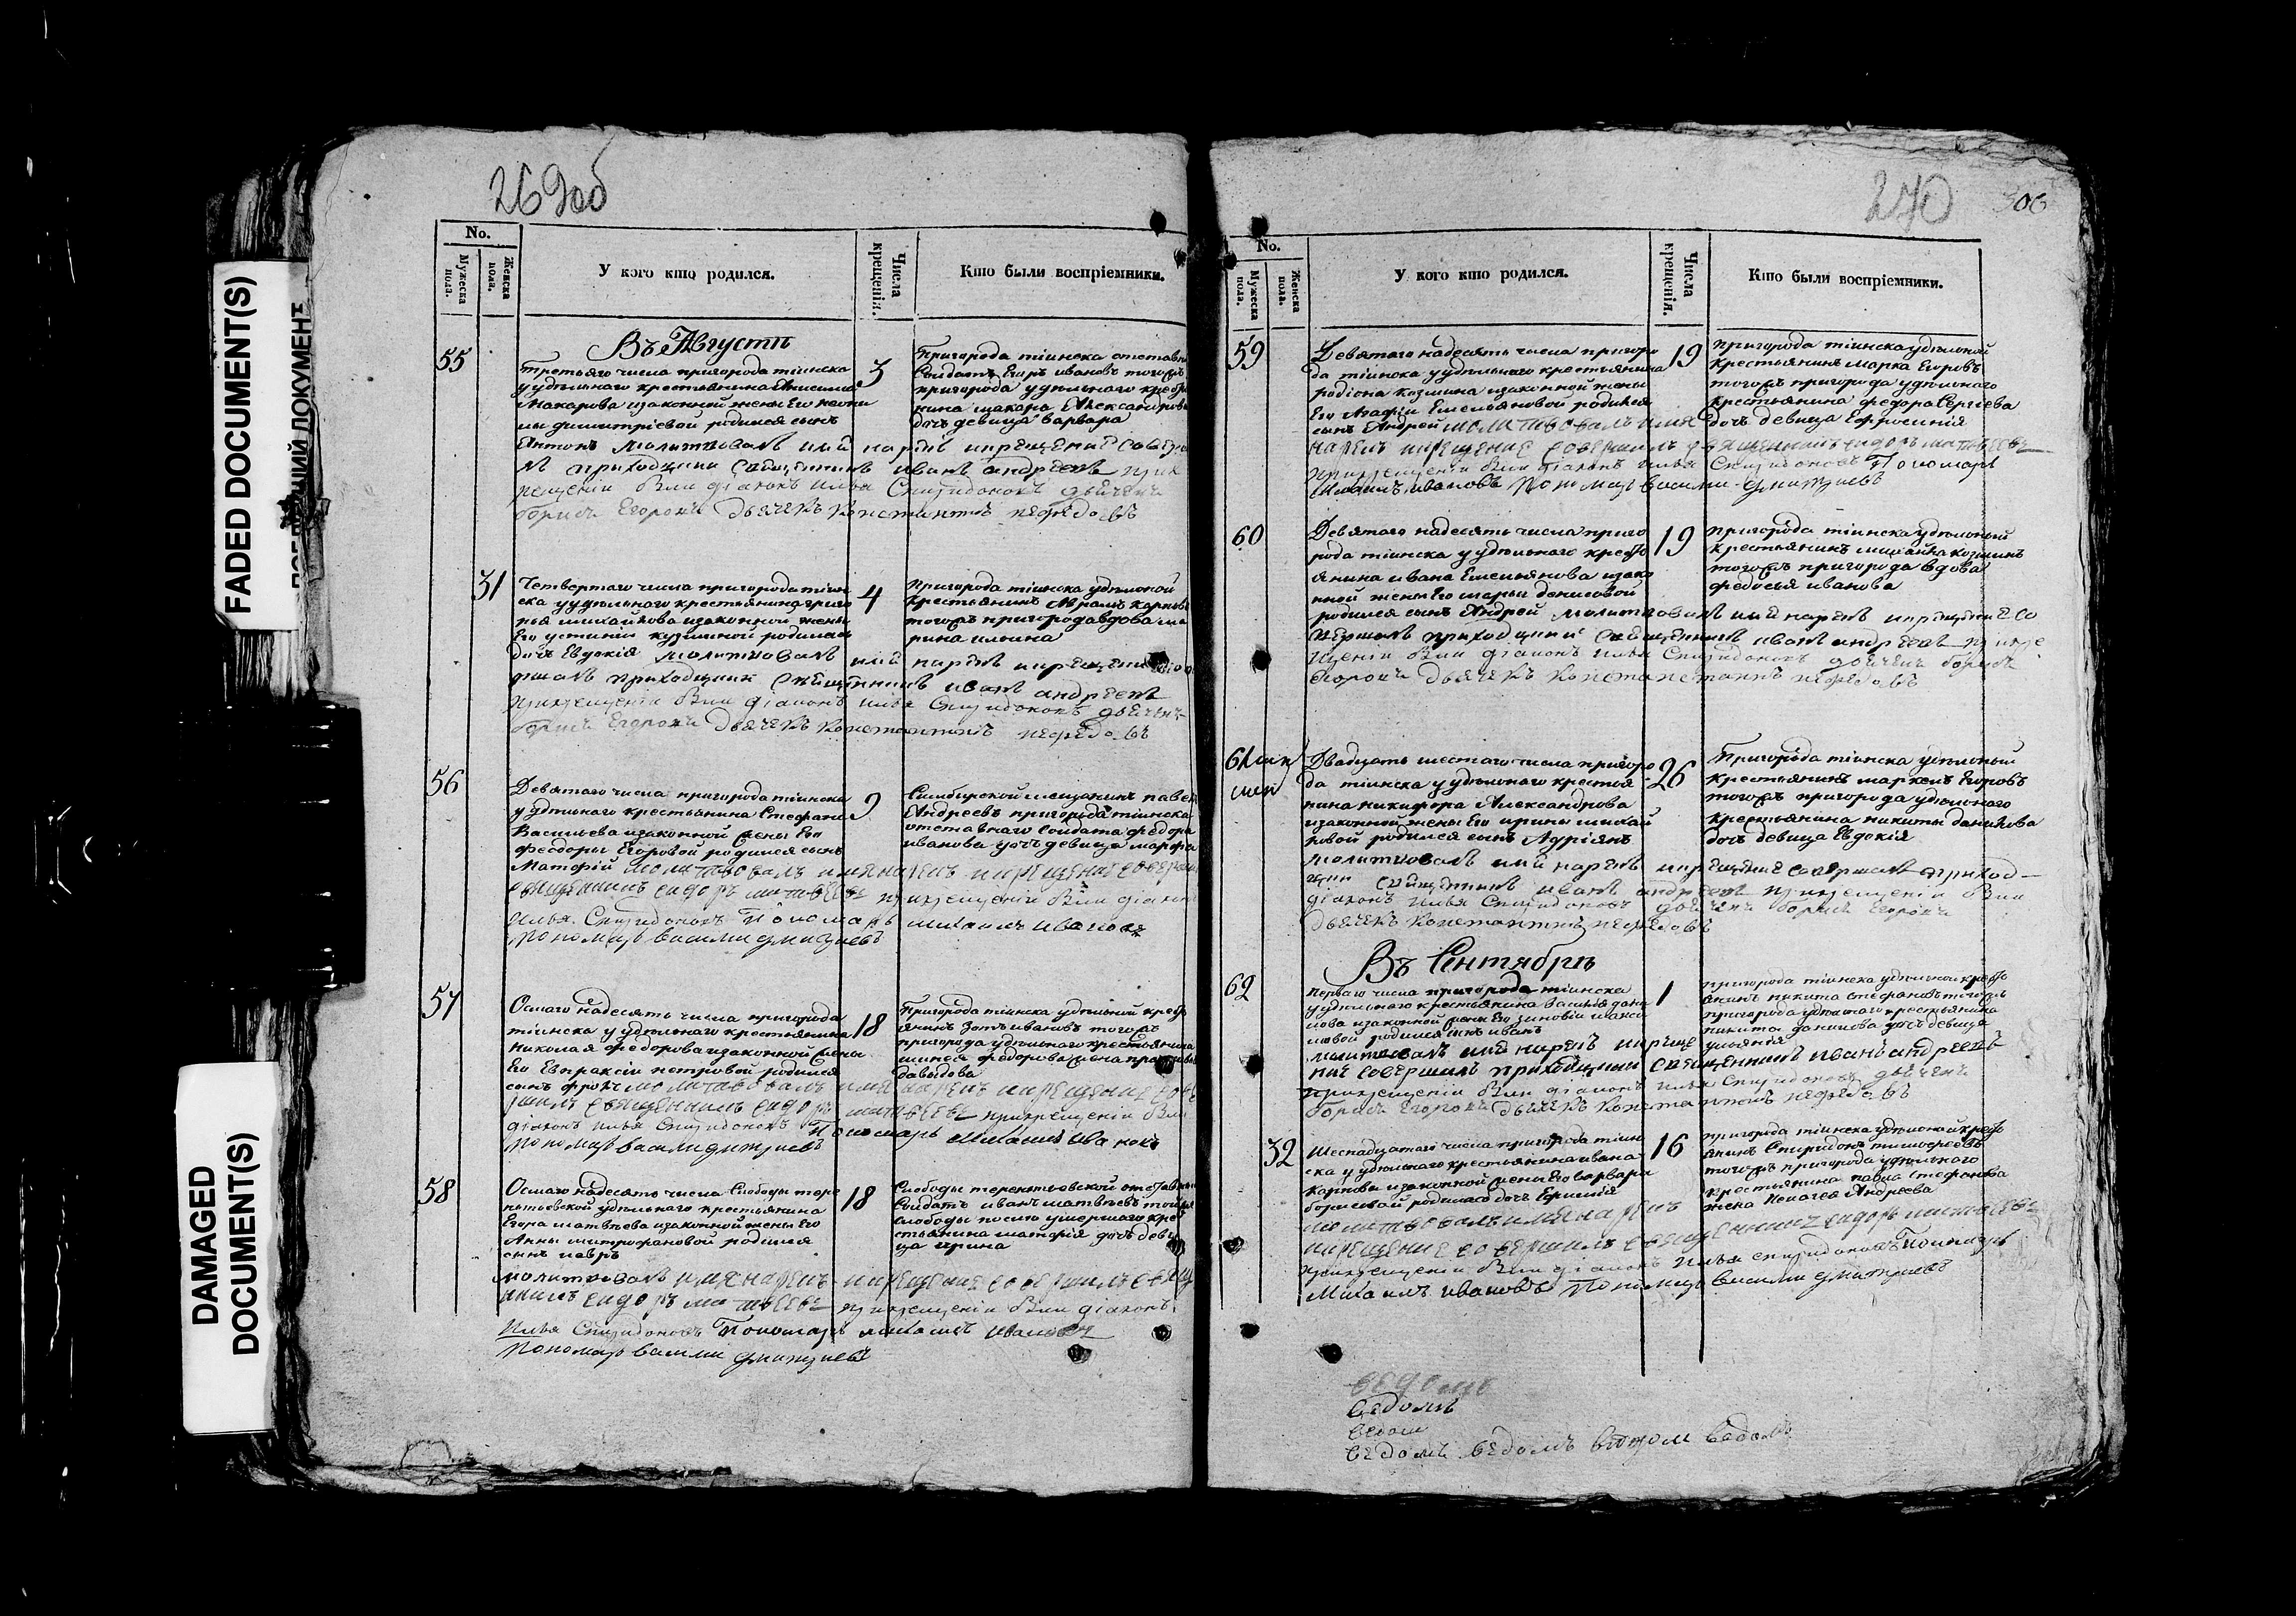 FADED DOCUMENT(S)
DAMAGED
DOCUMENT(S)
269 об
No.
Мужеска пола.
Женска пола.
У кого кто родился.
Числа крещенія.
Кто были воспріемники.
Въ Августѣ
55
Третьяго числа пригорода тіинска
у удѣльнаго крестьянина Анисима
Макарова изаконной жены Его
димитріевой родился сынъ
Антонъ молитвовалъ имя нарѣкъ икрещение совер
приходцкии священникъ иванъ андреевъ прик
рещении были діаконъ илья Спиридоновъ дьячекъ
борисъ Егоровъ дьячекъ константинъ нефедовъ
3
Пригорода тіинска отставн
Солдатъ Егоръ ивановъ тогожъ
пригорода удѣльнаго крестья
нина макара Александрова
дочь девица варвара
31
Четвертаго числа пригорода тіин
ска у удѣльнаго крестьянина григо
рья михайлова изаконной жены
Его устиніи кузминой родилась
дочь Евдокія молитвовалъ имя нарѣкъ икрещение
ршалъ приходцкии священникъ иванъ андреевъ
прикрещении были діаконъ илья Спиридоновъ дьячекъ
борисъ Егоровъ дьячекъ константинъ нефедовъ
4
Пригорода тіинска удѣльной
крестьянинъ Абрамъ карповъ
тогожъ пригорода вдова ма
рина ильина
56
Девятаго числа пригорода тіинска
у удѣльнаго крестьянина Стефана
Васильева изаконной жены Его
феодоры Егоровой родился сынъ
Матфій молитвовалъ имя нарекъ икрещение соверши
священникъ сидоръ матвеевъ прикрещении были діаконъ
илья Спиридоновъ Пономарь михаилъ ивановъ
Пономарь василии дмитриевъ
9
Симбирской мещанинъ павел
Андреевъ пригорода тіинска
отставнаго Солдата федора
иванова дочь девица марфа
57
Осмаго надесять числа пригорода
тіинска у удѣльнаго крестьянина
николая федорова изаконной жены
Его Евпраксіи петровой родился
сынъ фролъ молитвовалъ имя нарекъ икрещение сове
ршилъ священникъ сидоръ матвеевъ прикрещении были
діаконъ илья Спиридоновъ Пономарь Михаилъ Ивановъ
Пономарь василии дмитриевъ
18
Пригорода тіинска удѣльной крест
янинъ Зотъ ивановъ тогожъ
пригорода удѣльнаго крестьянина
федорова жена
давыдова
58
Осмаго надесять числа Слободы тере
нтьевской удѣльнаго крестьянина
Егора матвѣева изаконной жены Его
Анны митрофановой родился
сынъ лавръ
молитвовалъ имя нарекъ икрещение совершилъ свящ
енникъ сидоръ матвеевъ прикрещении были діаконъ
Илья Спиридоновъ Пономарь михаилъ ивановъ
Пономарь василии дмитриевъ
18
Слободы терентьевской отставной
Солдатъ иванъ матвѣевъ тойже
слободы послѣ умершаго кре
стьянина матфія дочь деви
ца ирина
270
306
No.
Мужеска пола.
Женска пола.
У кого кто родился.
Числа крещенія.
Кто были воспріемники.
59
Девятаго надесять числа приго
да тіинска у удѣльнаго крестьянина
родіона козмина изаконной жены
Его Агафіи Емельяновой родился
сынъ Андрей молитвовалъ имя
нарекъ икрещение совершилъ священникъ сидоръ матвеевъ
прикрещении были діаконъ илья Спиридоновъ Пономарь
Михаилъ ивановъ Пономарь василии дмитриевъ
19
пригорода тіинска удѣльной
крестьянинъ марка Егоровъ
тогожъ пригорода удѣльнаго
крестьянина федора Сергіева
дочь девица Ефросинія
60
Девятаго надесять числа приго
рода тіинска у удѣльнаго кресть
янина ивана Емельянова изако
нной жены Его марьи денисовой
родился сынъ Андрей молитвовалъ имя нарекъ икрещение со
вершалъ приходцкии священникъ иванъ андреевъ прикре
щении были діаконъ илья Спиридоновъ дьячекъ борисъ
Егоровъ дьячекъ константинъ нефедовъ
19
пригорода тіинска удѣльный
крестьянинъ михайла козминъ
тогожъ пригорода вдова
федосья иванова
61
Двадцать шестаго числа пригоро
да тіинска у удѣльнаго крестья
нина никифора Александрова
изаконной жены Его ирины михай
ловой родился сынъ Адріянъ
молитвовалъ имя нарекъ икрещение совершалъ приход
цкии священникъ иванъ андреевъ прикрещении были
діаконъ илья Спиридоновъ дьячекъ борисъ Егоровъ
дьячекъ константинъ нефедовъ
26
Пригорода тіинска удѣльный
крестьянинъ маркелъ Егоровъ
тогожъ пригорода удѣльнаго
крестьянина никиты данилова
дочь девица Евдокія
Въ Сентябрѣ
62
перваго числа пригорода тіинска
у удѣльнаго крестьянина василья дани
лова изаконной жены Его зиновіи макси
мовой родился сынъ иванъ
молитвовалъ имя нарекъ икреще
ние совершилъ приходцкии священникъ иванъ андреевъ
прикрещении были діаконъ илья Спиридоновъ дьячекъ
борисъ Егоровъ дьячекъ константинъ нефедовъ
1
пригорода тіинска удѣльной кресть
янинъ никита стефановъ тогожъ
пригорода удѣльнаго крестьянина
никиты данилова дочь девица
ульянія
32
Шеснадцатаго числа пригорода тіин
ска у удѣльнаго крестьянина ивана
Карпова изаконной жены Его варвары
борисовой родилась дочь Ефимія
молитвовалъ имя нарекъ
икрещение совершилъ священникъ сидоръ матвеевъ
прикрещении были діаконъ илья спиридоновъ Пономарь
Михаилъ ивановъ Пономарь василии дмитриевъ
16
пригорода тіинска удѣльной кресть
янинъ Спиридонъ тимофеевъ
тогожъ пригорода удѣльнаго
крестьянина павла стефанова
жена Пелагея Андреева
ведомъ
ведомъ
ведом
ведомъ ведомъ ведом ведомъ